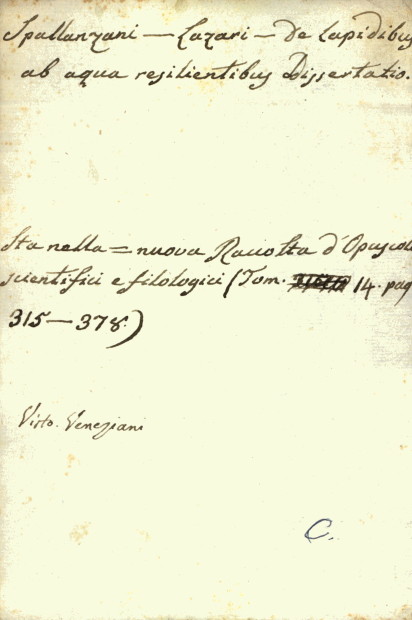 Spallanzani — Lazari — De Lapidibus
ab aqua resilientibus Dissertatio.
Sta nella = nuova Raccolta d'Opuscol
scientifici e filologici (Tom. 14. pag
315 — 378.)
Visto. Veneziani
C.